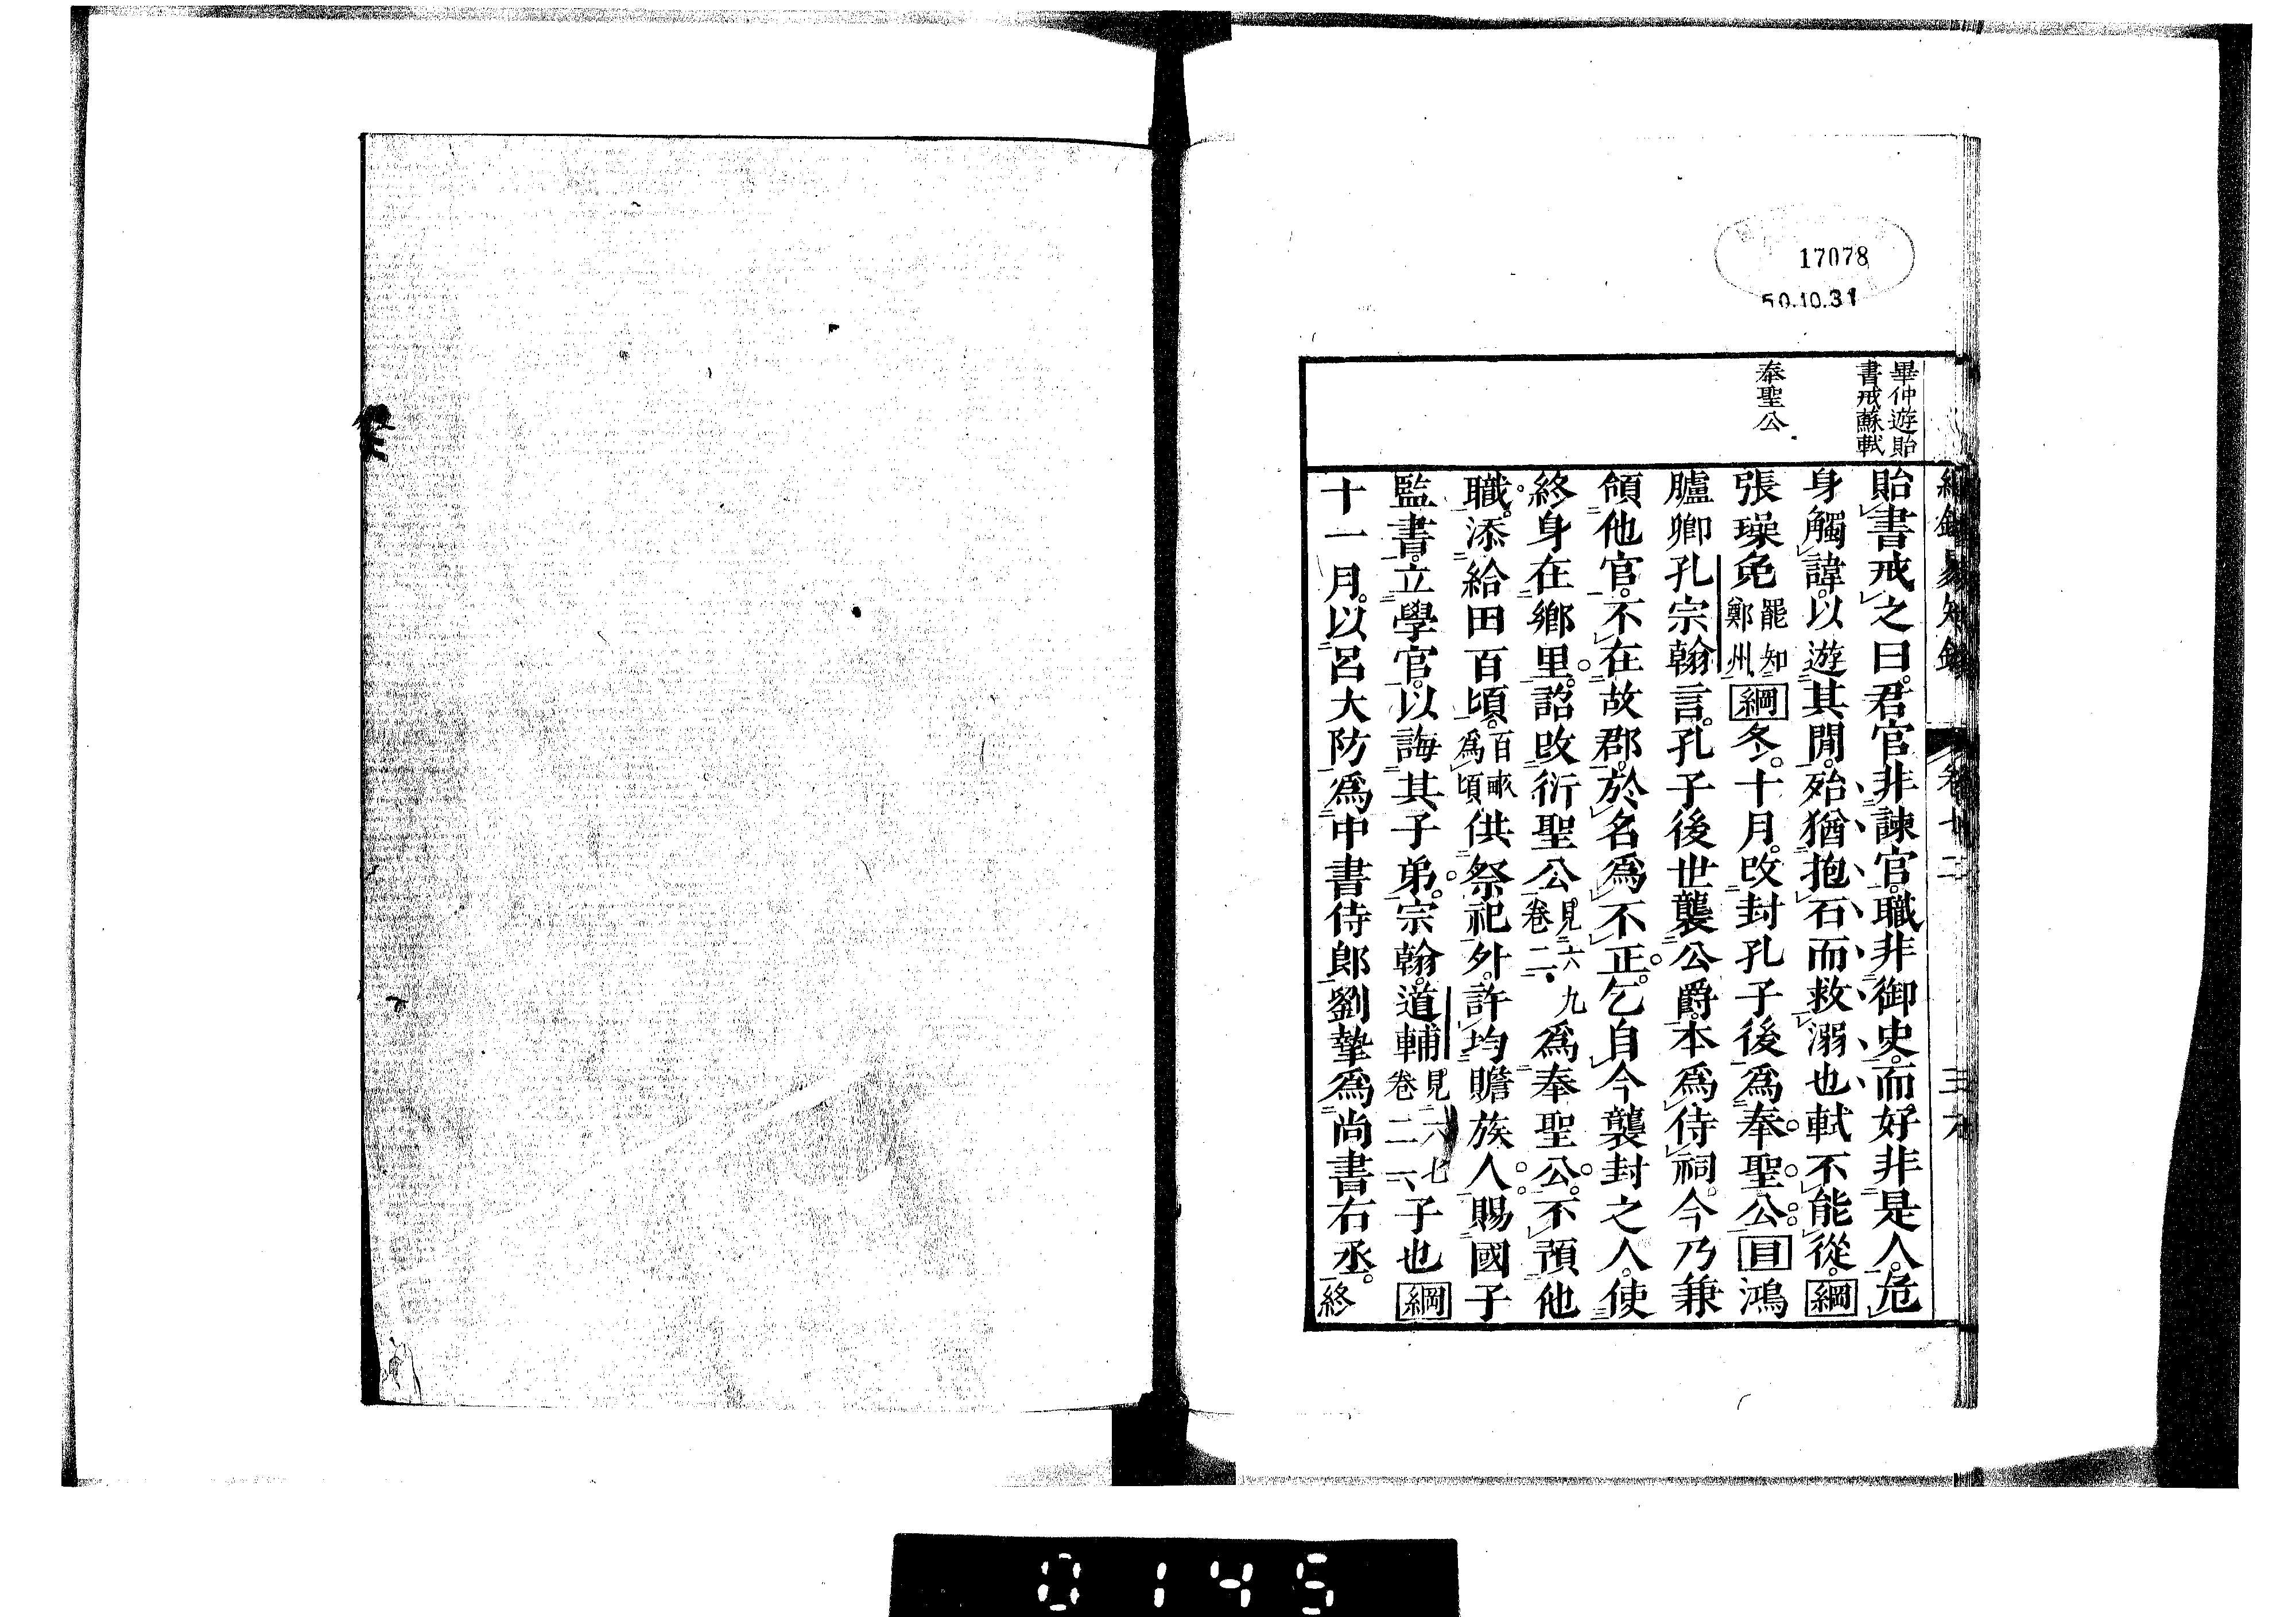 17078
50.10.31
畢仲遊貽
書戒蘇軾
奉聖公
貽書戒之曰。君官非諫官。職非御史。而好非是人。危
身觸諱。以遊其閒。殆猶抱石而救溺也。軾不能從。綱
張璪免罷知鄭州綱冬。十月。改封孔子後爲奉聖公。目鴻
臚卿孔宗翰言。孔子後世襲公爵。本爲侍祠。今乃兼
領他官。不在故郡。於名爲不正。乞自今襲封之人。使
終身在鄉里。詔改衍聖公見六九卷二爲奉聖公。不預他
職。添給田百頃。百畝爲頃供祭祀外。許均贍族人。賜國子
監書。立學官。以誨其子弟。宗翰。道輔見六七卷二一子也綱
十一月。以呂大防爲中書侍郎。劉摯爲尚書右丞。終
0145